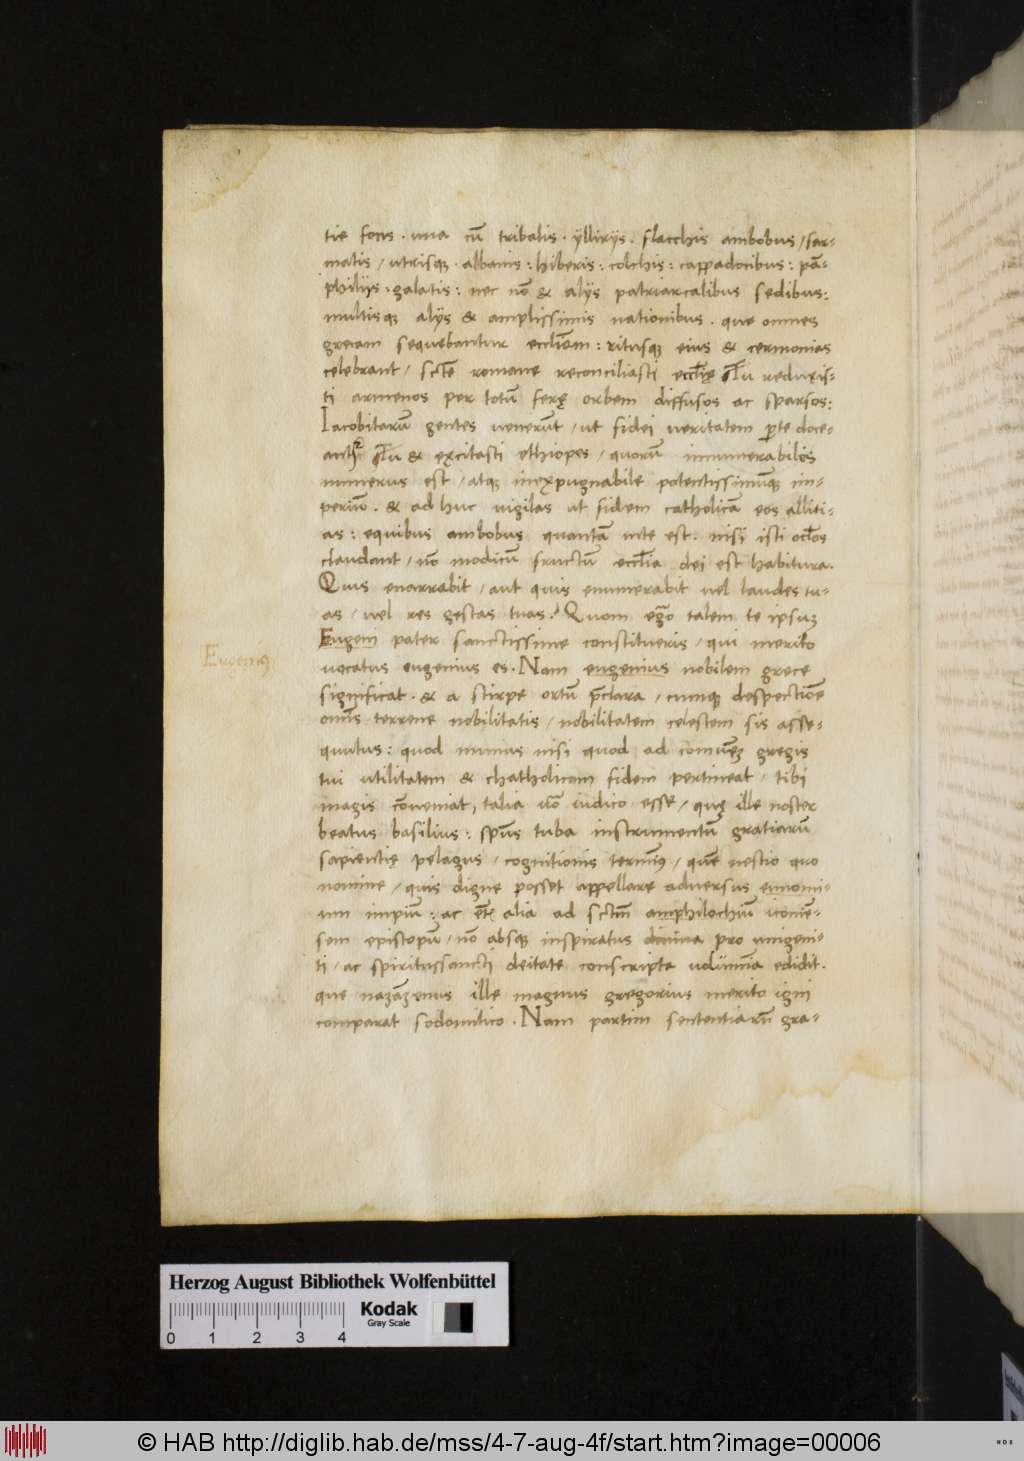 tie focis . una cū tribalis . ÿllirijs . flacchis ambobus / sar-
matis / utrisqꝫ . albanis : hiberis : colchis : cappadocibus : pā-
philijs : galatis : nec nō & alijs patriarcalibus sedibus :
multisqꝫ alijs & amplissimis nationibus . que omnes
grecam sequebantur eccl̄iam : ritusqꝫ eius & cermonias
celebrant / sctē romanę reconciliasti eccl̄ię Tu reduxis-
ti armenos per totū ferę orbem diffusos ac sparsos :
Iacobitarū gentes venerūt / ut fidei veritatem ꝑte doce-
antꝛ Tu & excitasti ethiopes / quorū innumerabilis
numerus est / atqꝫ inexpugnabile potentissimūqꝫ im-
periū . & ad huc vigilas ut fidem catholicā eos alliti-
as : equibus ambobus quantā inte est . nisi isti oc̄los
claudant / nō modicū fructū eccl̄ia dei est habitura .
Quis enarrabit / aut quis enumerabit vel laudes tu-
as / vel res gestas tuas ? Quom eg̊o talem te ipsuꝫ
Eugeni pater sanctissime constitueris / qui merito
vocatus eugenius es . Nam eugenius nobilem grece
significat . & a stirpe ortū p̄clara / cumqꝫ despectiōe
om̄is terrene nobilitatis / nobilitatem celestem sis asse-
qutus : quod munus nisi quod ad comūeꝫ gregis
tui utilitatem & chatholicam fidem pertineat / tibi
magis cōveniat, talia v̄o iudico esse / quę ille noster
beatus basilius : sp̄us tuba instrumentū gratiarū
sapientię pelagus / cognitionis termin9 / quē nescio quo
nomine / quis digne posset appellare adversus eunomi-
um impiū : ac et̄ alia ad sctm̄ amphilochiū iconiē-
sem episcopū / nō absqꝫ inspiratus divina pro unigeni-
ti / ac spiritussancti deitate conscripta volūmīa edidit .
que nazāzenus ille magnus gregorius merito igni
comparat sodomitico . Nam partim sententiarū gra-
Eugeni9
Herzog August Bibliothek Wolfenbüttel
Kodak
Gray Scale
0 1 2 3 4
© HAB http://diglib.hab.de/mss/4-7-aug-4f/start.htm?image=00006